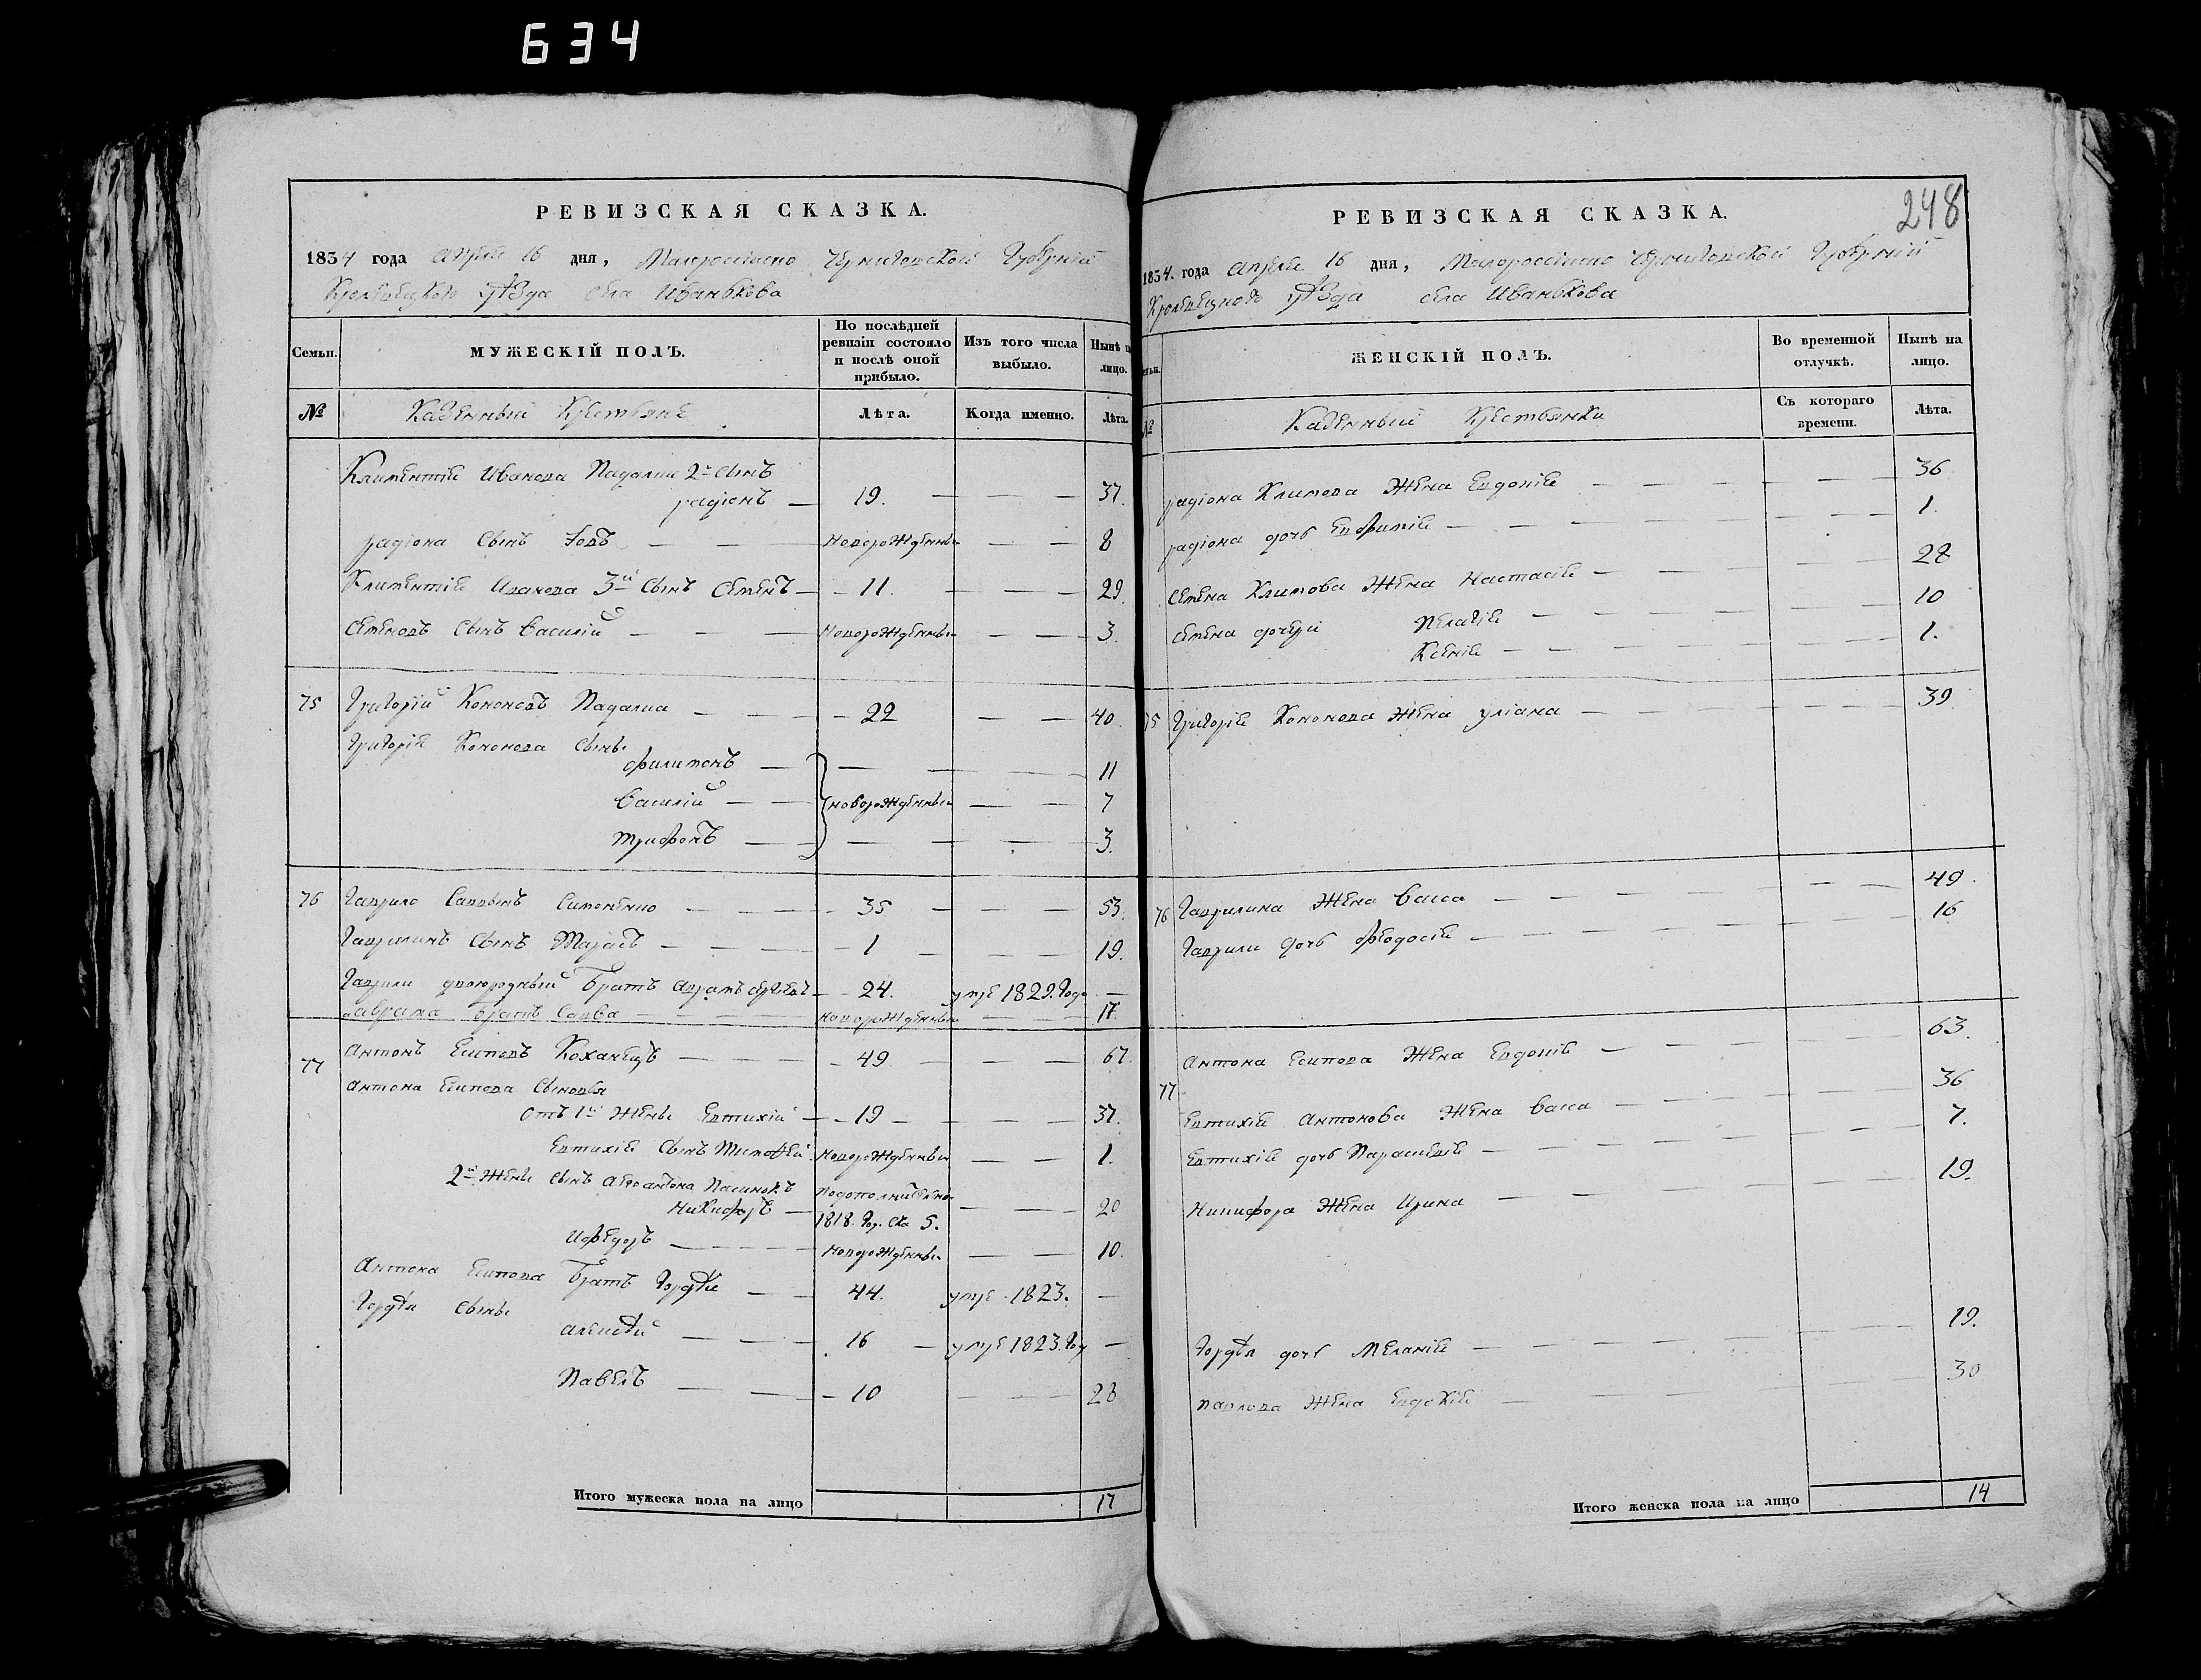 634
РЕВИЗСКАЯ СКАЗКА.
1834 года апреля 16 дня, Малороссійско Черниговской Губерніи
Кролевецкого уѣзда села Иванькова
Семьи.
МУЖЕСКІЙ ПОЛЪ.
По послѣдней ревизіи состояло и послѣ оной прибыло.
Изъ того числа выбыло.
Нынѣ на лицо.
№
Казенныи Крестьяне
Лѣта.
Когда именно.
Лѣта.
Климентіе Иванова Падалки 2й Сынъ
радіонъ — 19. — — — 37.
радіона Сынъ Іовъ — — Новорожденны — — 8
Климентіе Иванова 3й Сынъ Семенъ — 11. — — — 29.
Семеновъ Сынъ Василій — — Новорожденны — — 3.
75 Григорій Кононовъ Падалка — — — 22 — — 40.
Григоріе Кононова Сыны
филимонъ — — — — 11
Василій — — новорожденны — — 7
Трифонъ — — — — 3.
76 Гаврило Саввинъ Симоненко — — — 35 — — — 53.
Гаврилинъ Сынъ Тарасъ — — — 1 — — — 19.
Гаврили двоюродный Братъ Аврамъ — 24. умре 1829. Года —
Аврама Братъ Савва — — — новорожденны — — 17
77 Антонъ Есиповъ Коханецъ — — — 49 — — — 67.
Антона Есипова Сыновья
отъ 1й Жены Евтихій — 19 — — — 37.
Евтихіе Сынъ Тимофей новорожденны — — 1.
2й Жены Сынъ а его антона Пасинокъ
Никифоръ —
1818. Год. 5. — — 20
Иѳедоръ — — — новорожденны — — 10.
Антона Есипова Братъ Гордѣй — — 44. умре 1823. —
Гордѣя Сыны
Алексѣй — — — 16 — умре 1823. Году —
Павелъ — — — 10 — — — 28
Итого мужеска пола на лицо 17
248
РЕВИЗСКАЯ СКАЗКА.
1834. года апреля 16 дня, Малороссійско Черниговской Губерніи
Кролевецкого уѣзда села Иванькова
ЖЕНСКІЙ ПОЛЪ.
Во временной отлучкѣ.
Нынѣ на лицо.
№
Казенныи Крестьянки
Съ котораго времени.
Лѣта.
радіона Климова Жена Евдокіе — — — 36
радіона дочь Евфиміе — — — 1.
Семена Климова Жена Настасіе — — — 28
Семена дочери Пелагіе — — — 10
Ксеніе — — — 1.
75 Григоріе Кононова Жена Уліана — — — 39
76 Гаврилина Жена Васса — — — 49.
Гаврили дочь Феодосіе — — — 16
77 Антона Есипова Жена Евдокіе — — — 63.
Евтихіе Антонова Жена Васса — — — 36
Евтихіе дочь Параскевіе — — — 7.
Никифора Жена Ирина — — — 19.
Гордѣя дочь Меланіе — — — 19.
Павлова Жена Евдокіе — — — 30
Итого женска пола на лицо 14